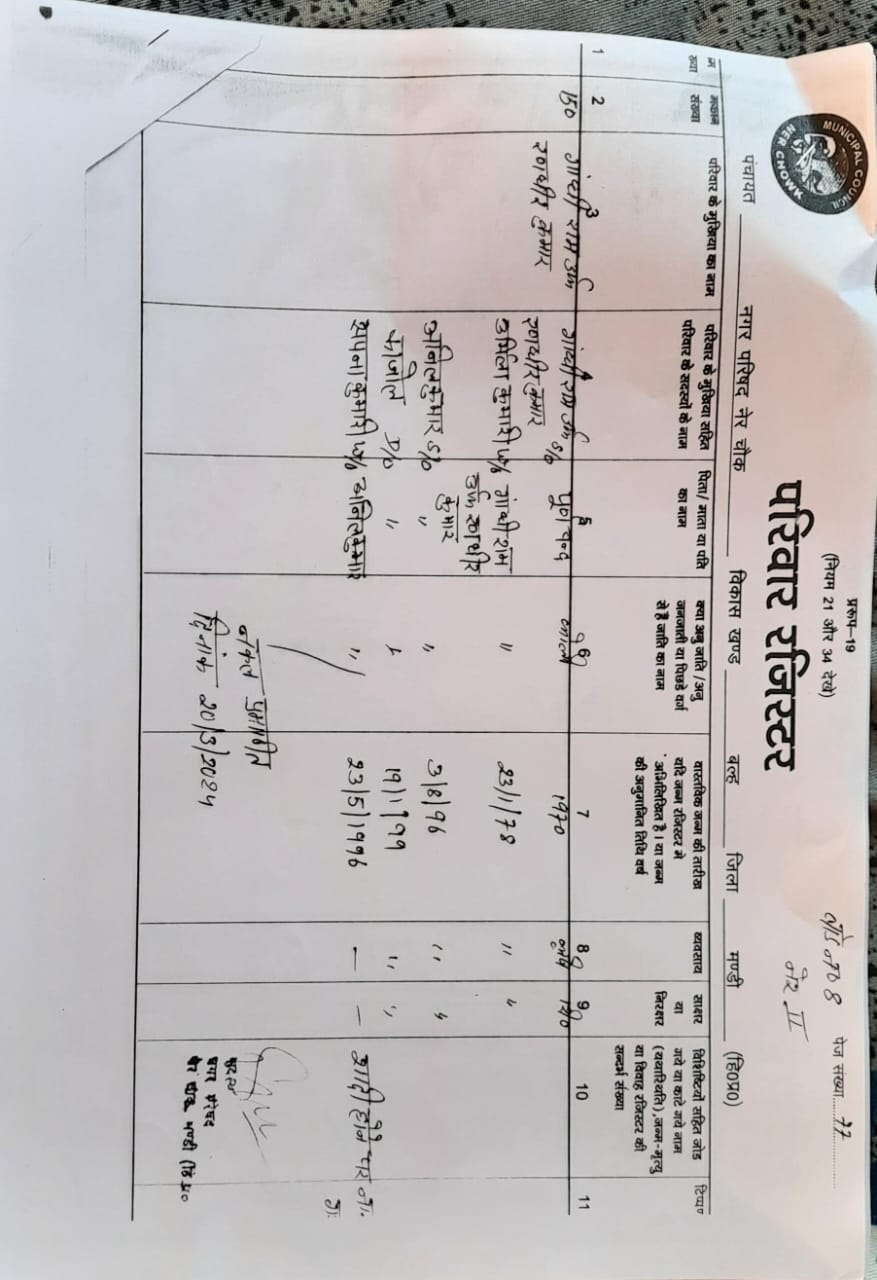 MUNICIPAL COUNCIL
NER CHOWK
प्ररूप–19
(नियम 21 और 34 देखे)
परिवार रजिस्टर
वार्ड न० 8 पेज संख्या......77............
नेर II
पंचायत नगर परिषद नेर चौक विकास खण्ड बल्ह जिला मण्डी (हि०प्र०)
मकान संख्या
परिवार के मुखिया का नाम
परिवार के मुखिया सहित परिवार के सदस्यों के नाम
पिता/ माता या पति का नाम
क्या अनु जाति /अनु जनजाती या पिछडे वर्ग से है जाति का नाम
वास्तविक जन्म की तारीख यदि जन्म रजिस्टर मे अभिलिखित है। या जन्म की अनुमानित तिथि वर्ष
व्यवसाय
साक्षर या निरक्षर
विशिष्टियों सहित जोड गये या काटे गये नाम (यथास्थिति),जन्म-मृत्यु या विवाह रजिस्टर की सन्दर्भ संख्या
टिप्पण
1 2 3 4 5 6 7 8 9 10 11
150 गांधी राम उर्फ रणधीर कुमार गांधी राम उर्फ रणधीर कुमार S/o पूर्ण चन्द 1970
उर्मिला कुमारी W/o गांधी राम उर्फ रणधीर कुमार " 23/1/78 " "
अनिल कुमार S/o " " 3/8/96 " "
D/o " 19/1/99 " "
सपना कुमारी W/o अनिल कुमार " 23/5/1996 — — शादी होने पर
नकल प्रमाणित
दिनांक 20/3/2024
नगर परिषद
नेर चौक मण्डी (हि.प्र०